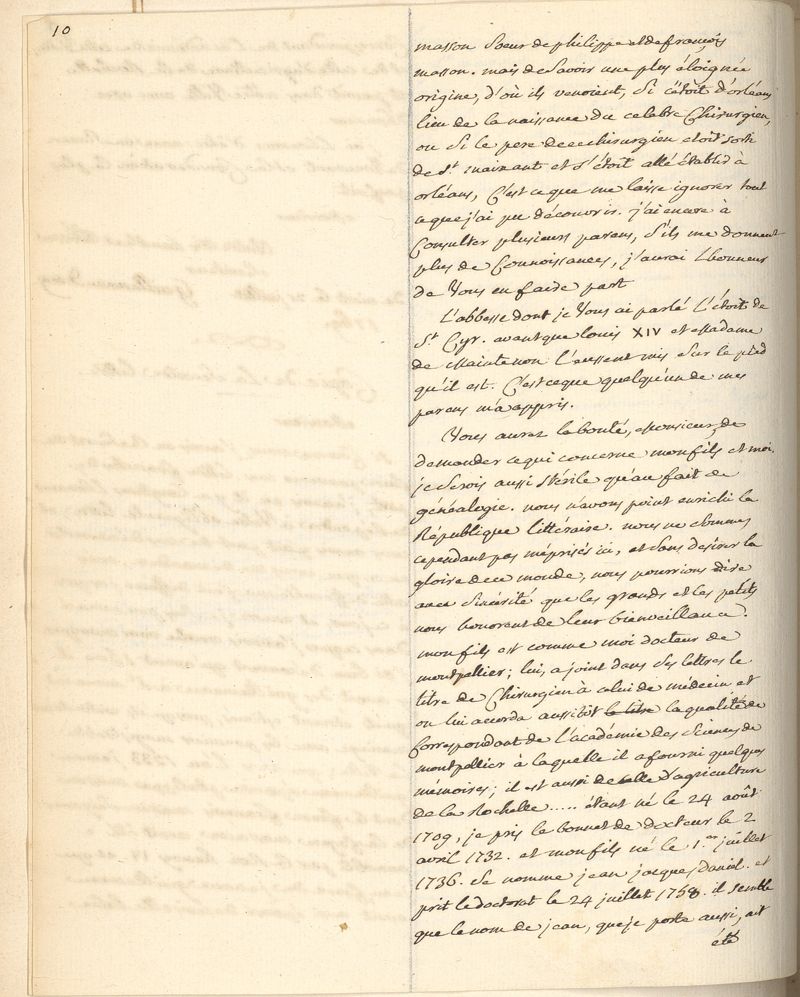 10
masson Soeur de philippe et de françois
masson. mais de Savoir une plus éloignée
origine, d'où ils venoient, Si c'étoit d'orléans
lieu de la naissance du celebre Chirurgien,
ou Si le pere de ce chirurgien etoit sorti
de St. maixant et s'étoit allé établir à
orléans, C'est ce que me laisse ignorer tout
ce que j'ai pu découvrir. j'ai encore à
Consulter plusieurs parens, S'ils me donnent
plus de Connoissances, j'aurai l'honneur
de Vous en faire part
L'abbesse dont je Vous ai parlé L'étoit de
St Cyr. avant que louis XIV et Madame
de Maintenon l'eussent mis Sur le pied
qu'il est. C'est ce que quelqu'un de mes
parens m'a appris.
Vous avez la bonté, Monsieur, de
demander ce qui concerne mon fils et moi.
je Serois aussi Stérile qu'au fait de
généalogie. nous n'avons point enrichi la
République littéraire. nous ne Sommes
cependant pas méprisés ici, et Sans desirer la
gloire de ce monde, nous pourrions dire
avec Sincérité que les grands et les petits
nous honorent de leur bienveillance.
mon fils est comme moi docteur de
montpellier; lui, a joint dans Ses lettres le
titre de Chirurgien à celui de médecin et
on lui acorda aussitôt le titre la qualité de
Correspondant de L'académie des Sciences de
montpellier à laquelle il a fourni quelques
memoires; il est aussi de celle d'agriculture
de la Rochelle ..... étant né le 24 août
1709, je pris le bonnet de docteur le 2
avril 1732. et mon fils né le 1.er juillet
1736. Se nomme jean jacques Daniel. et
prit le doctorat le 24 juillet 1758. il Semble
que le nom de jean, que je porte aussi, ait
été